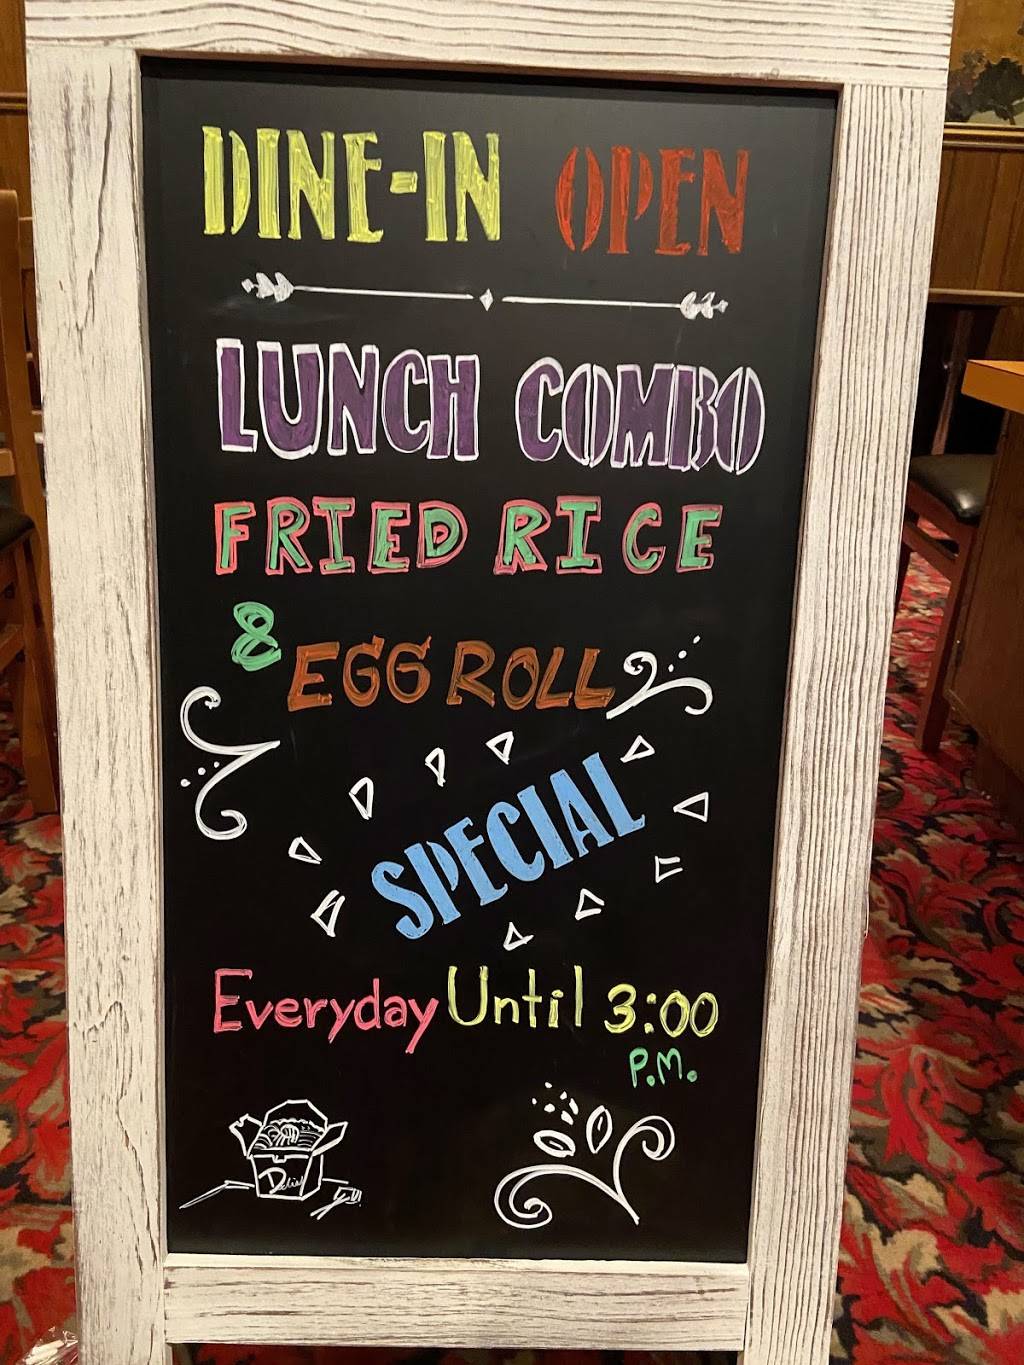 DINE-IN OPEN
LUNCH COMBO
FRIED RICE
& EGG ROLL
SPECIAL
Everyday Until 3:00
P.M.